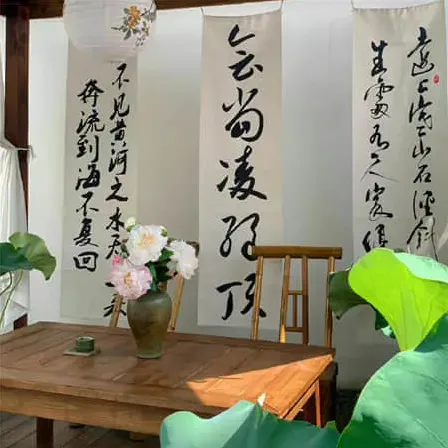 远上寒山石径斜
生處有人家
会當凌绝顶
不见黄河之水天
奔流到海不复回